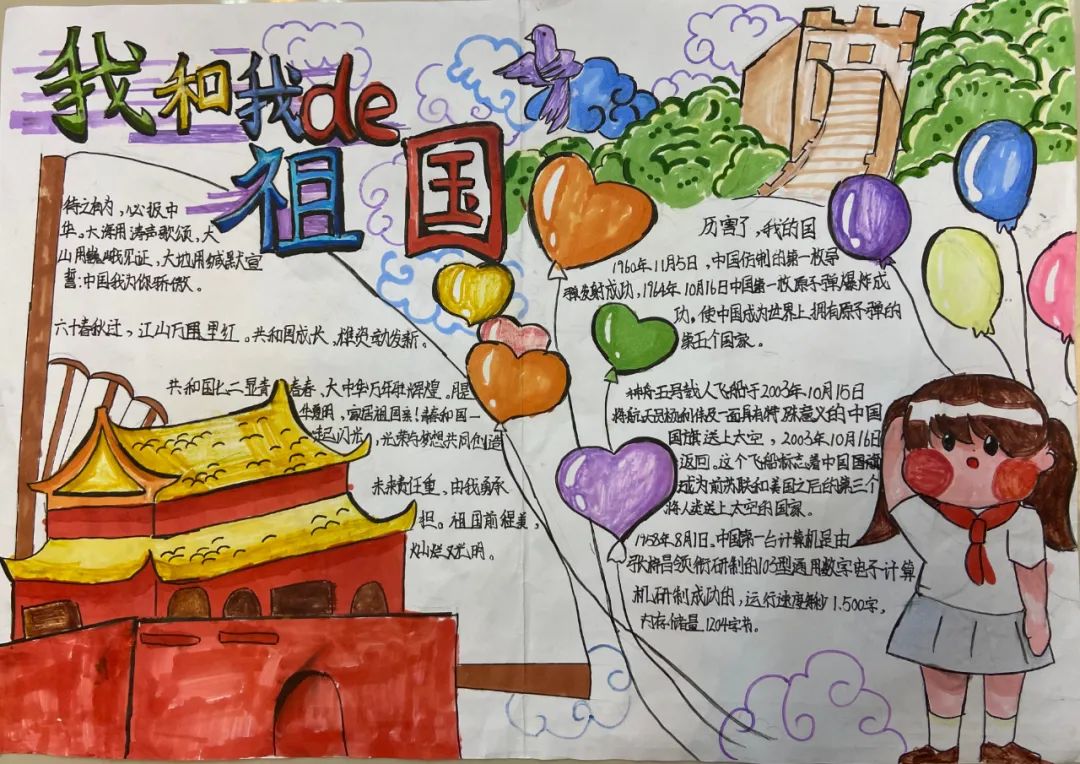 我和我de
祖国
侍之有为，必报中
华。大海用涛声歌颂，大
山用巍峨见证，大地用缄默宣
誓：中国我为你骄傲。
六十春秋迁，江山万里红。共和国成长，发新。
共和国七二显青春，大中华万年壮辉煌。
一起闪光，光荣与梦想共同创造
未来责任重，由我勇承
担。祖国前程美，
灿烂又光明。
历害了，我的国
1960年11月5日，中国仿制的第一枚导
弹发射成功，1964年10月16日中国第一枚原子弹爆炸成
功。使中国成为世界上拥有原子弹的
第五个国家。
神舟五号载人飞船于2003年10月15日
将航天员杨利伟及一面具有特殊意义的中国
国旗送上太空，2003年10月16日
返回。这个飞船标志着中国
成为前苏联和美国之后的第三个
将人类送上太空的国家。
1958年8月1日，中国第一台计算机是由
张梓昌领衔研制的103型通用数字电子计算
机研制成功的，运行速度每秒1.500字，
内存储量1204字书。